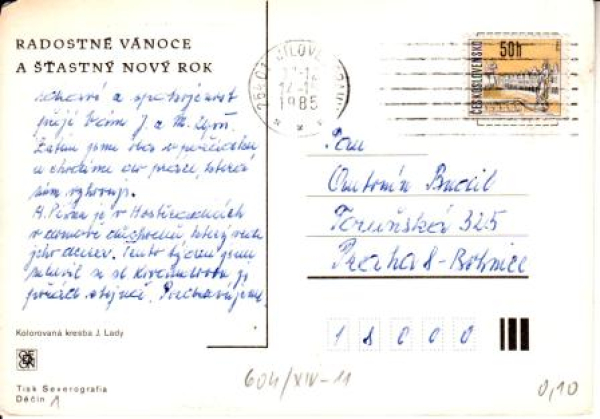 RADOSTNÉ VÁNOCE
A ŠŤASTNÝ NOVÝ ROK
zdraví a spokojenost
přejí Vám J. a M.
Zatím jsme oba v pořádku
a chodíme do práce, která
nám vyhovuje.
A. je v Hostěradicích
v domově důchodců který vede
jeho dcera. Tento týden jsem
mluvil se
pořád stejně. Pozdravujeme.
Kolorovaná kresba J. Lady
Tisk Severografia
Děčín 1
1985
50h
ČESKOSLOVENSKO
Pan
Antonín Bušil
Toruňská 325
Praha 8-Bohnice
18000
604/XIV-11
0,10